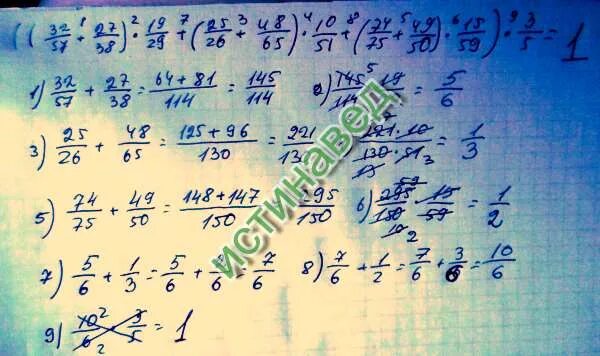 ((32/57 + 27/38) · 19/29 + (25/26 + 48/65) · 10/51 + (74/75 + 49/50) · 15/59) · 3/5 = 1
1) 32/57 + 27/38 = (64+81)/114 = 145/114 2) 145/114 · 19 = 5/6
3) 25/26 + 48/65 = (125+96)/130 = 221/130 221·10/130·51 = 1/3
5) 74/75 + 49/50 = (148+147)/150 = 295/150 6) 295/150 · 15/59 = 1/2
7) 5/6 + 1/3 = 5/6 + /6 = 7/6 8) 7/6 + 1/2 = 7/6 + 3/6 = 10/6
9) 10/6 · 3/5 = 1
ИСТИНАВЕД